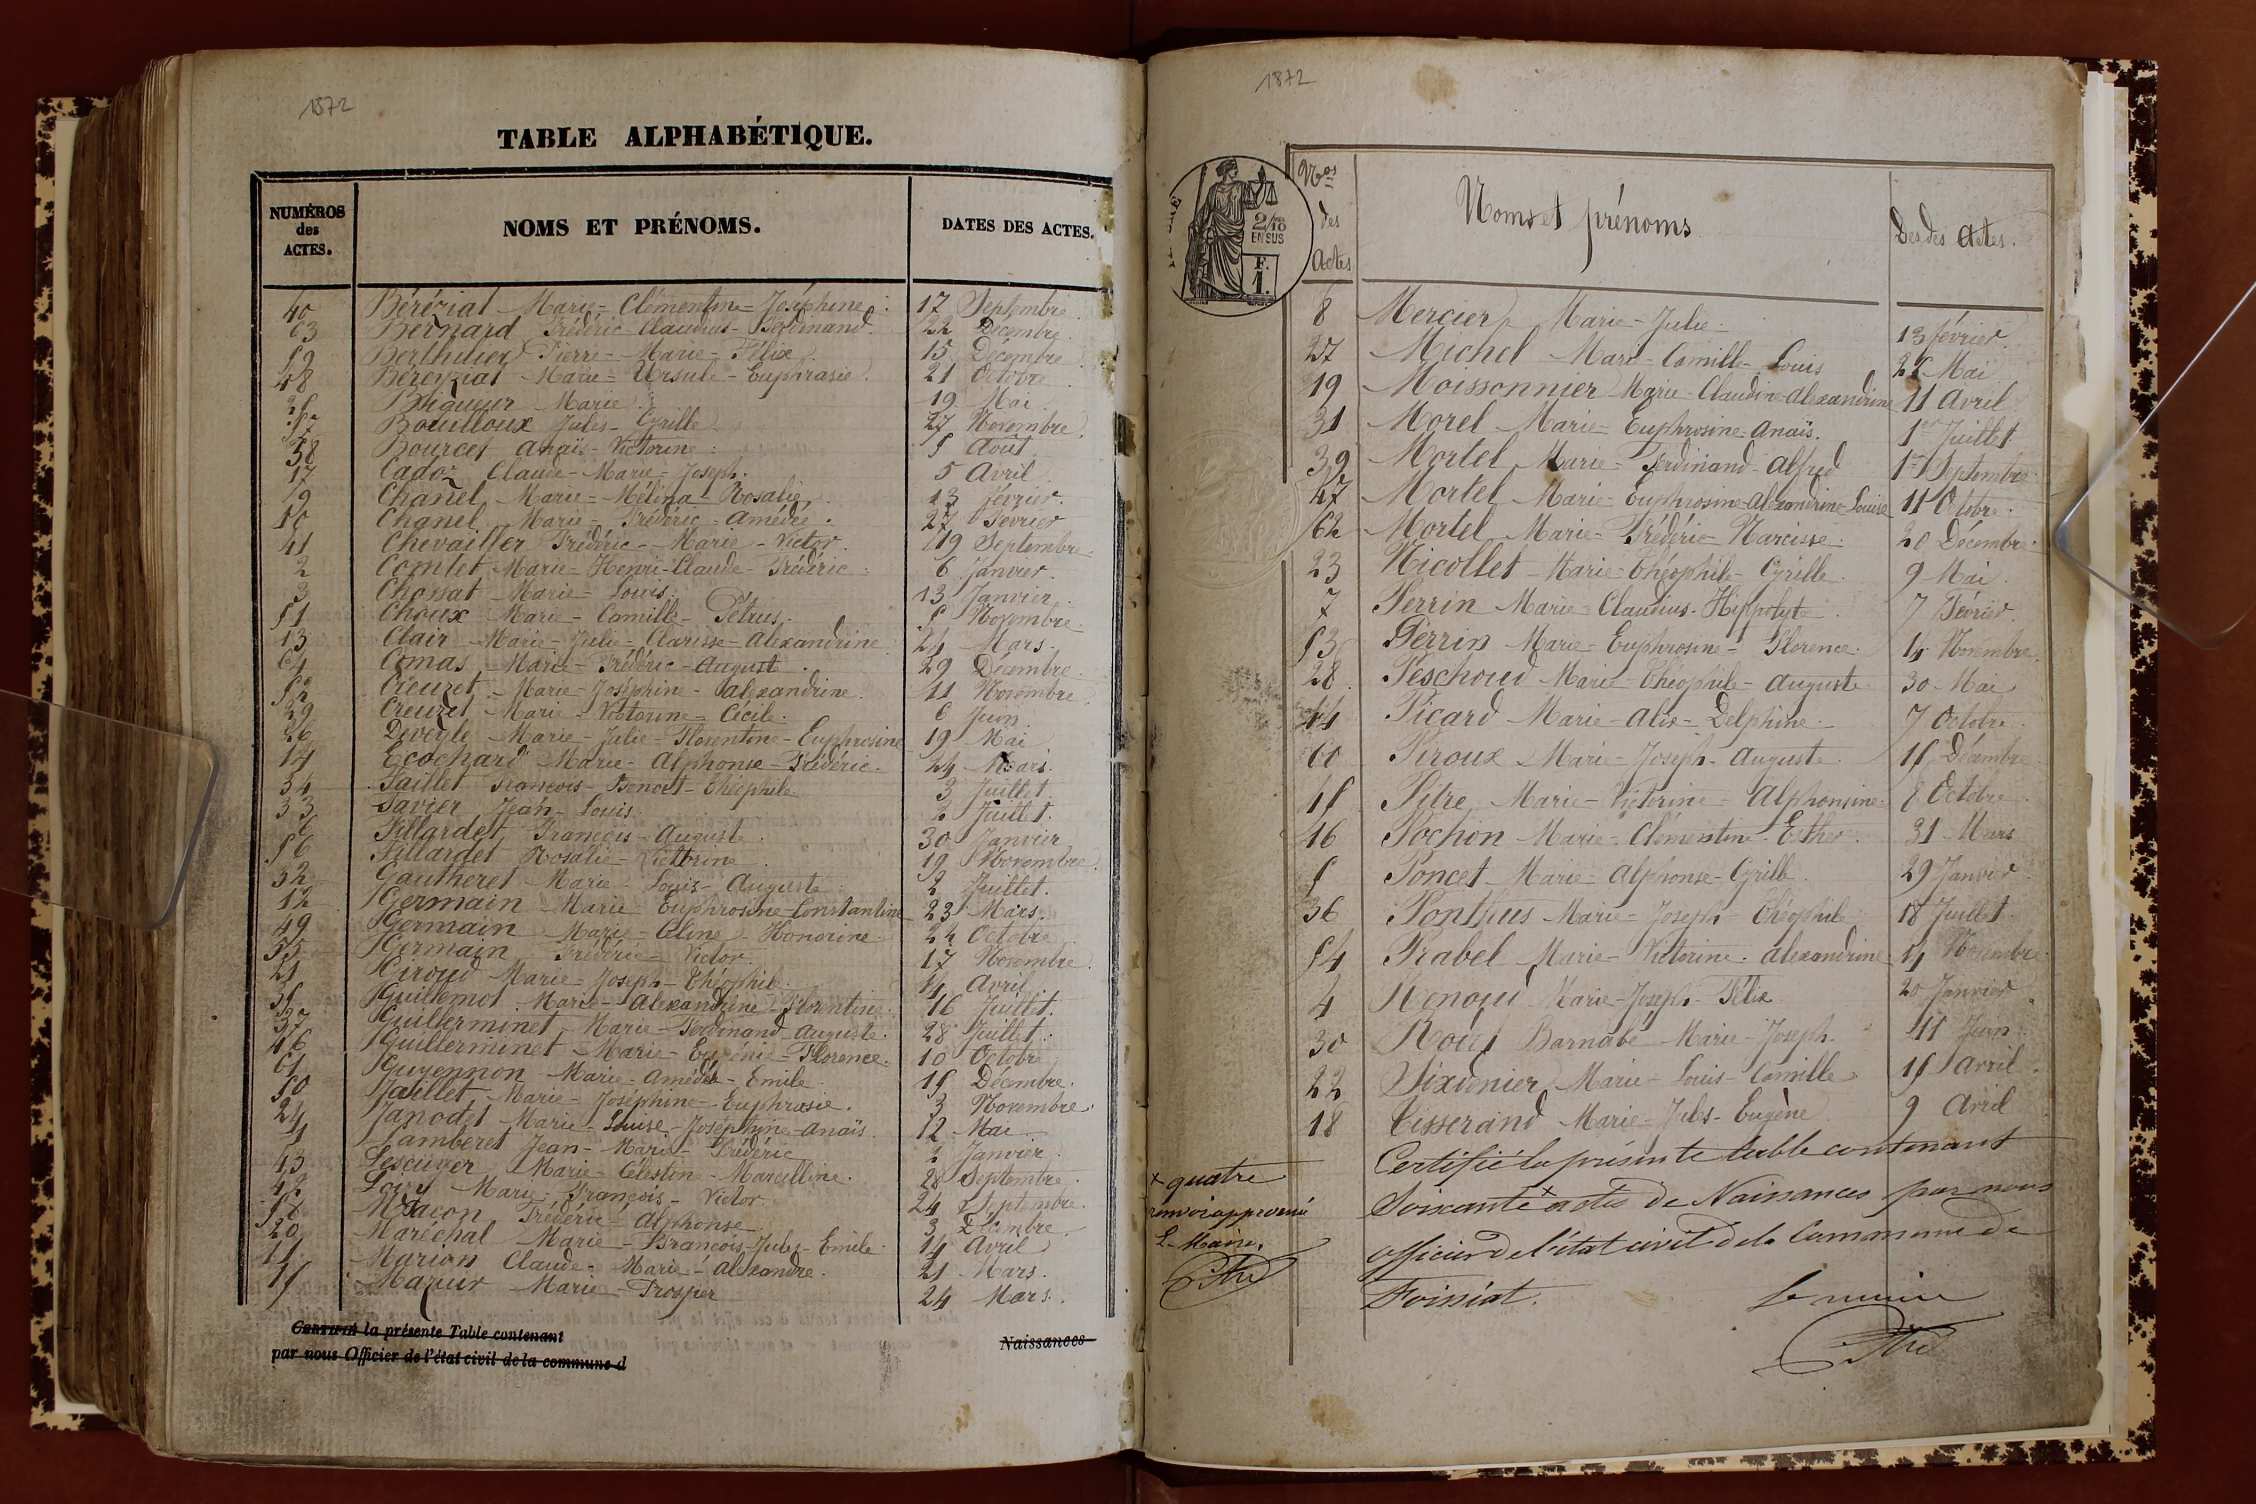 1872
TABLE ALPHABÉTIQUE.
NUMÉROS
des
ACTES.
NOMS ET PRÉNOMS.
DATES DES ACTES.
40 Béréziat Marie-Clémentine-Joséphine 17 Septembre
63 Bernard Frédéric-Claudius-Ferdinand 22 Décembre
59 Berthelier Pierre-Marie-Félix 15 Décembre
48 Béreyziat Marie-Ursule-Euphrasie 21 Octobre
25 Briqueur Marie 19 Mai
57 Bouilloux Jules-Cyrille 27 Novembre
38 Bourcet Anaïs-Victorine 5 Août
17 Cadoz Claude-Marie-Joseph 5 Avril
9 Chanel Marie-Mélina-Rosalie 13 février
10 Chanel Marie-Frédéric-Amédée 27 Février
41 Chevailler Frédéric-Marie-Victor 19 Septembre
2 Comtet Marie-Henri-Claude-Frédéric 6 Janvier
3 Chossat Marie-Louis 13 Janvier
51 Choux Marie-Camille-Pétrus 5 Novembre
13 Clair Marie-Julie-Clarisse-Alexandrine 24 Mars
64 Comas Marie-Frédéric-Auguste 29 Décembre
52 Creuzet Marie-Joséphine-Alexandrine 11 Novembre
29 Creuzet Marie-Victorine-Cécile 6 Juin
26 Devegle Marie-Julie-Florentine-Euphrosine 19 Mai
14 Ecochard Marie-Alphonse-Frédéric 24 Mars
34 Faillet François-Benoit-Théophile 3 Juillet
33 Favier Jean-Louis 2 Juillet
6 Fillardet François-Auguste 30 Janvier
56 Fillardet Rosalie-Victorine 19 Novembre
32 Gautheret Marie-Louis-Auguste 2 Juillet
12 Germain Marie Euphrosine-Constantine 23 Mars
49 Germain Marie-Céline-Honorine 24 Octobre
55 Germain Frédéric-Victor 17 Novembre
21 Giroud Marie-Joseph-Théophile 14 Avril
35 Guillemot Marie-Alexandrine-Florentine 16 Juillet
37 Guillerminet Marie-Ferdinand-Auguste 28 Juillet
46 Guillerminet Marie-Eugénie-Florence 10 Octobre
61 Guyennon Marie-Amédée-Emile 15 Décembre
50 Jaillet Marie-Joséphine-Euphrasie 3 Novembre
24 Janodet Marie-Louise-Joséphine-Anaïs 12 Mai
1 Lamberet Jean-Marie-Frédéric 2 Janvier
43 Lescuyer Marie-Célestine-Marcelline 28 Septembre
42 Marie François-Victor 24 Septembre
58 Macon Frédéric-Alphonse 3 Décembre
20 Maréchal Marie-François-Jules-Emile 14 Avril
11 Marion Claude-Marie-Alexandre 21 Mars
15 Mazuir Marie-Prosper 24 Mars
CERTIFIÉ la présente Table contenant Naissances
par nous Officier de l'état civil de la commune d
1872
2/10
EN SUS
F.
1.
Nos
des
Actes
Noms et prénoms
Des des Actes
8 Mercier Marie-Julie 13 février
27 Michel Marie-Camille-Louis 25 Mai
19 Moissonnier Marie-Claudine-Alexandrine 11 Avril
31 Morel Marie-Euphrosine-Anaïs 1er Juillet
39 Mortel Marie-Ferdinand-Alfred 1er Septembre
47 Mortel Marie-Euphrosine-Alexandrine-Louise 11 Octobre
62 Mortel Marie-Frédéric-Narcisse 20 Décembre
23 Nicollet Marie-Théophile-Cyrille 9 Mai
7 Perrin Marie-Claudius-Hippolyte 7 Février
53 Perrin Marie-Euphrosine-Florence 14 Novembre
28 Péschoud Marie-Théophile-Auguste 30 Mai
44 Picard Marie-Alix-Delphine 7 Octobre
60 Piroux Marie-Joseph-Auguste 15 Décembre
45 Pitre Marie-Victorine-Alphonsine 8 Octobre
16 Pochon Marie-Clémentine-Esther 31 Mars
5 Poncet Marie-Alphonse-Cyrille 29 Janvier
36 Ponthus Marie-Joseph-Théophile 18 Juillet
54 Prabel Marie-Victorine-Alexandrine 14 Novembre
4 Renoud Marie-Joseph-Félix 20 Janvier
30 Roux Barnabé-Marie-Joseph 11 Juin
22 Sixdenier Marie-Louis-Camille 15 Avril
18 Tisserand Marie-Jules-Eugène 9 Avril
Certifié la présente table contenant
Soixante x actes de Naissances par nous
officier de l'état civil de la Commune de
Foissiat.
Le maire
Pitre
x quatre
renvoi approuvé
Le Maire,
Pitre